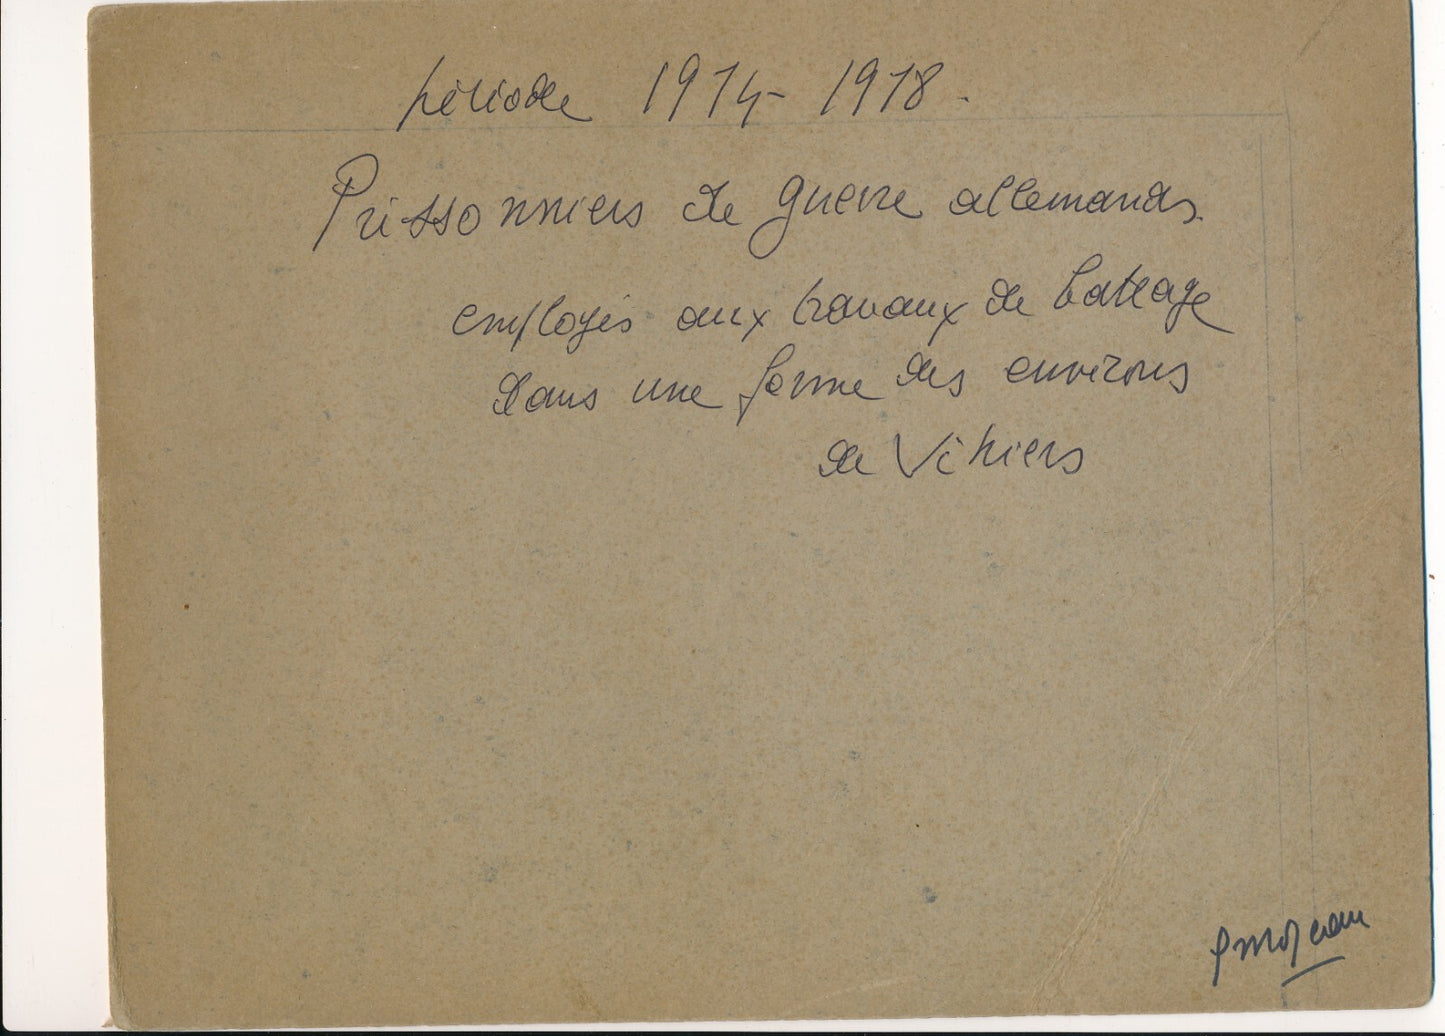 période 1914-1918.
Prissonniers de guerre allemands
employés aux travaux de battage
dans une ferme des environs
de Vihiers